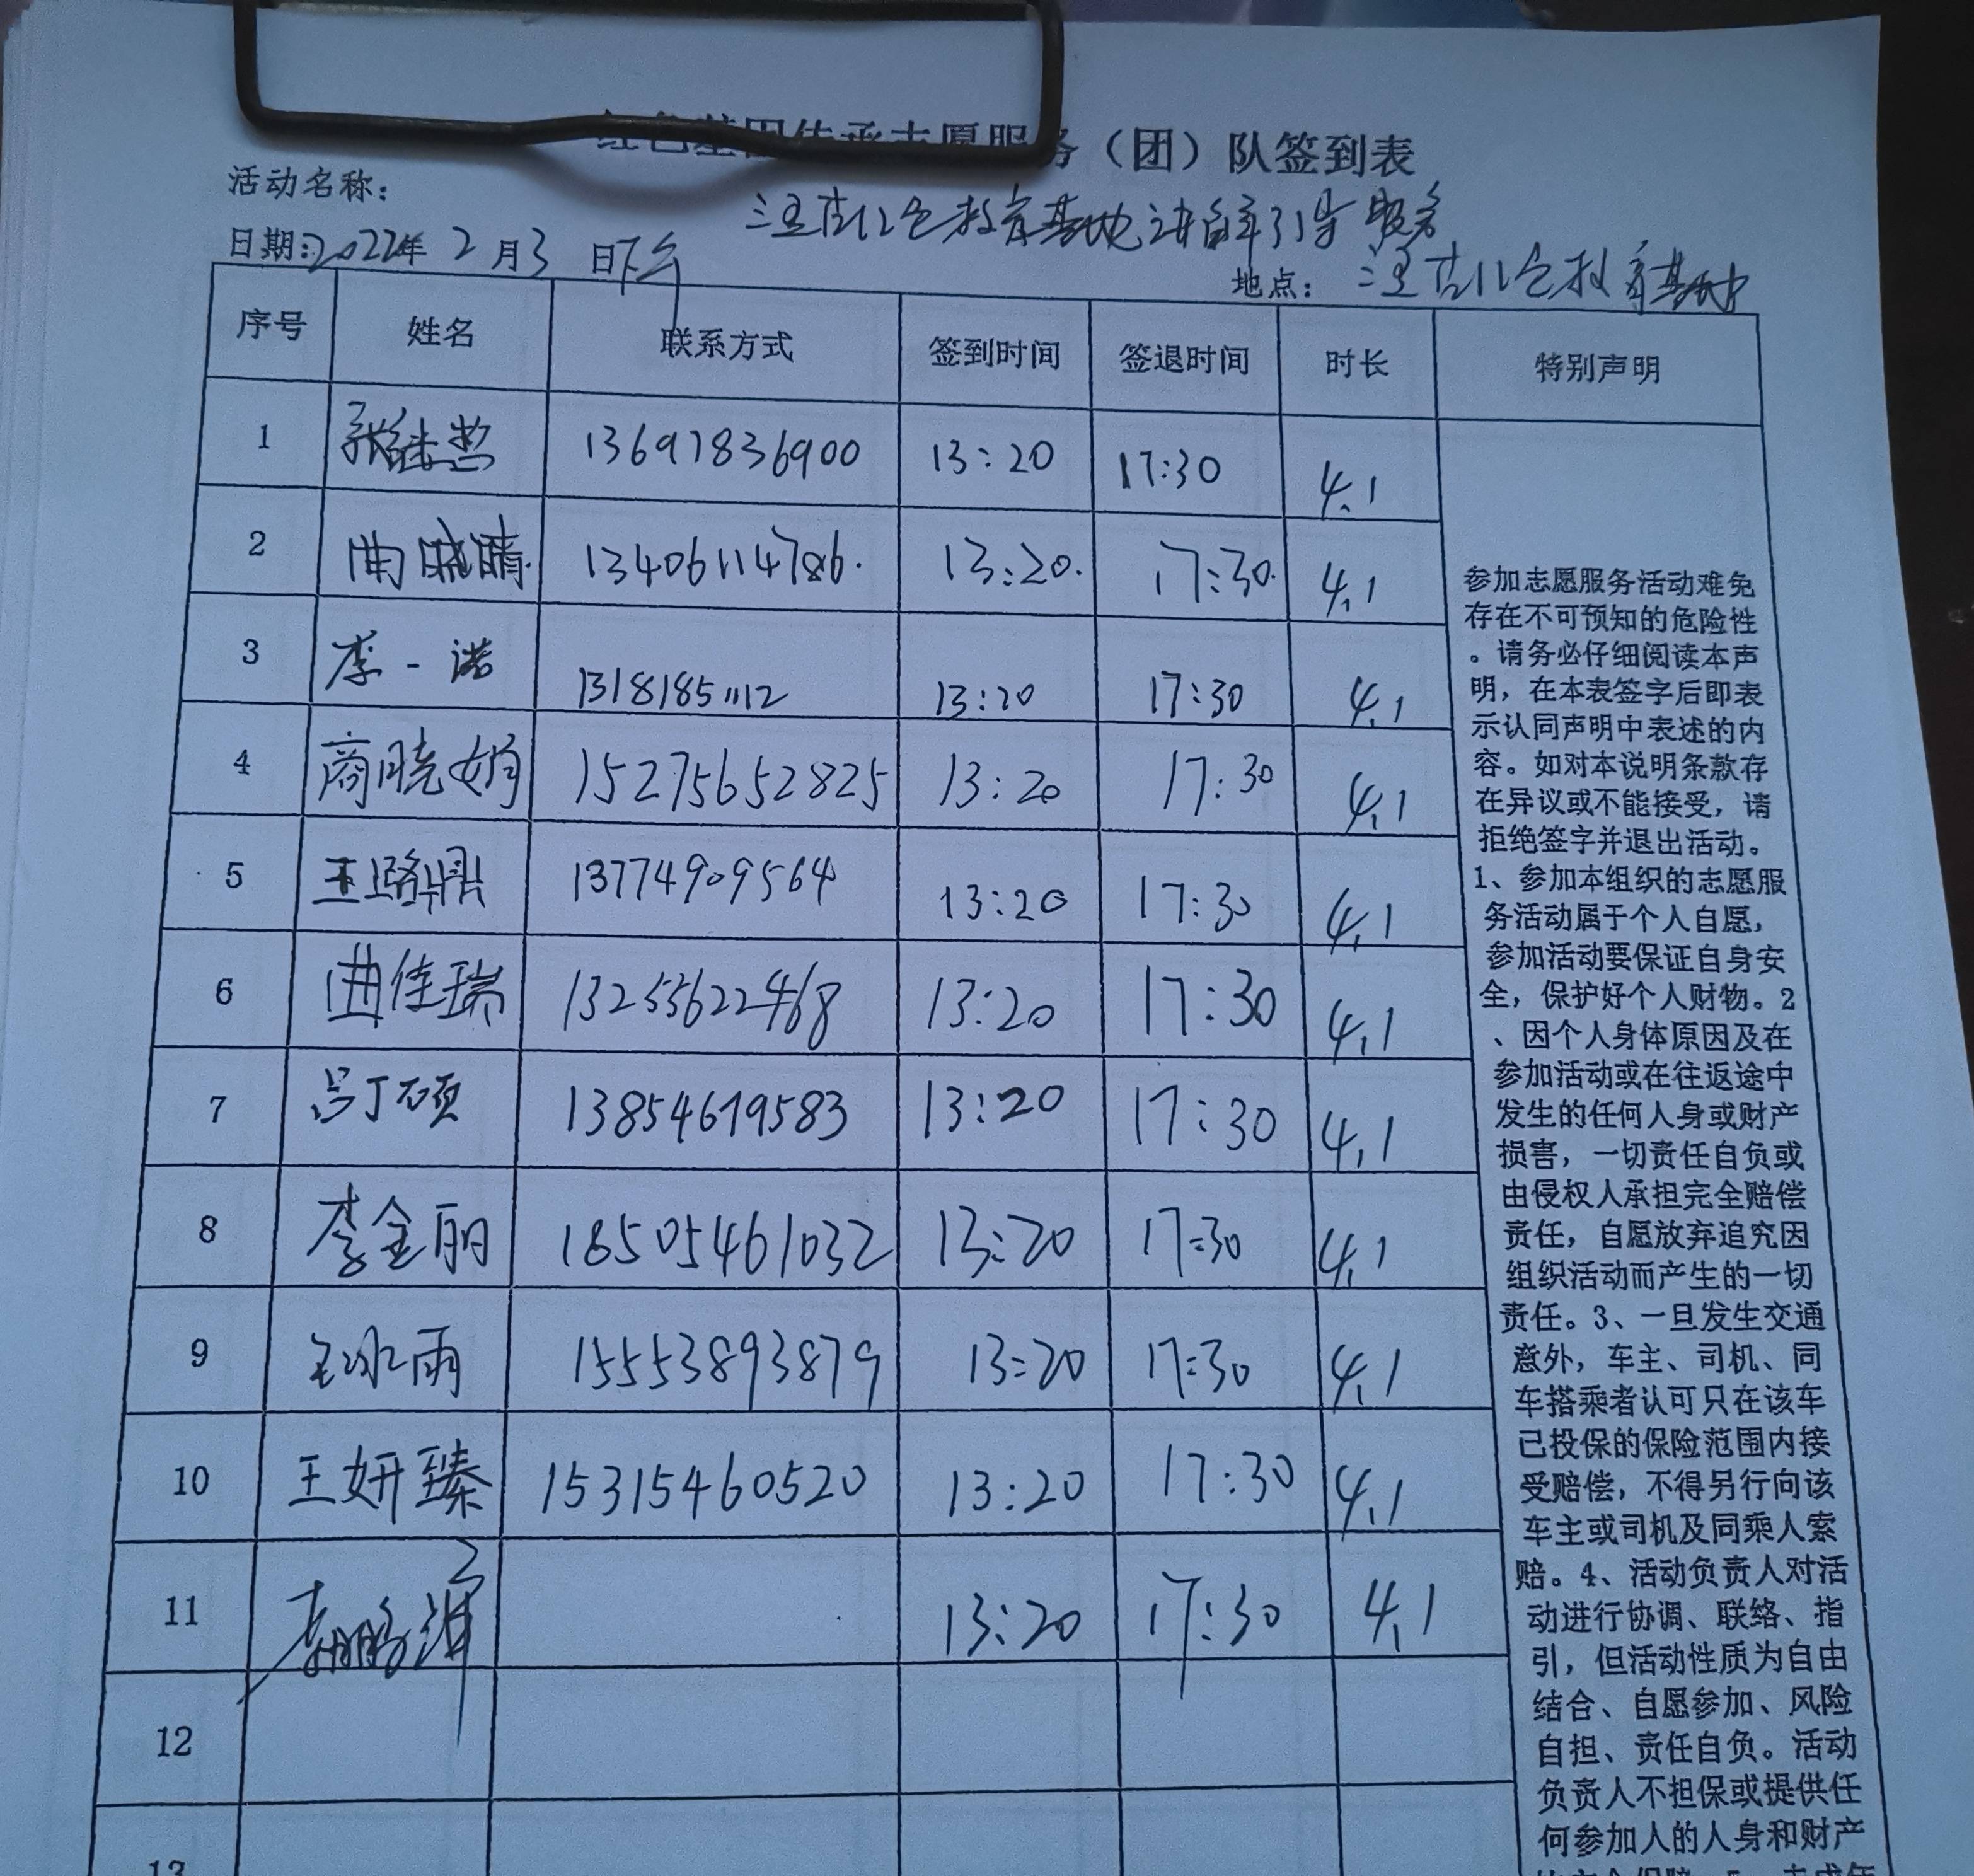 红色基因传承志愿服务（团）队签到表
活动名称：
讲解引导服务
日期：2022年2月3日下午
地点：
序号 姓名 联系方式 签到时间 签退时间 时长 特别声明
1 13697836900 13:20 17:30 4.1
2 曲晓晴 13406114786. 13:20. 17:30. 4.1
3 李一诺 13181851112 13:20 17:30 4.1
4 商晓娟 15275652825 13:20 17:30 4.1
5 王璐鼎 13774909564 13:20 17:30 4.1
6 曲佳瑞 13255622468 13:20 17:30 4.1
7 吕丁硕 13854679583 13:20 17:30 4.1
8 李金丽 18505461032 13:20 17:30 4.1
9 王冰雨 15553893879 13:20 17:30 4.1
10 王妍臻 15315460520 13:20 17:30 4.1
11 13:20 17:30 4.1
12
13
参加志愿服务活动难免
存在不可预知的危险性
。请务必仔细阅读本声
明，在本表签字后即表
示认同声明中表述的内
容。如对本说明条款存
在异议或不能接受，请
拒绝签字并退出活动。
1、参加本组织的志愿服
务活动属于个人自愿，
参加活动要保证自身安
全，保护好个人财物。2
、因个人身体原因及在
参加活动或在往返途中
发生的任何人身或财产
损害，一切责任自负或
由侵权人承担完全赔偿
责任，自愿放弃追究因
组织活动而产生的一切
责任。3、一旦发生交通
意外，车主、司机、同
车搭乘者认可只在该车
已投保的保险范围内接
受赔偿，不得另行向该
车主或司机及同乘人索
赔。4、活动负责人对活
动进行协调、联络、指
引，但活动性质为自由
结合、自愿参加、风险
自担、责任自负。活动
负责人不担保或提供任
何参加人的人身和财产